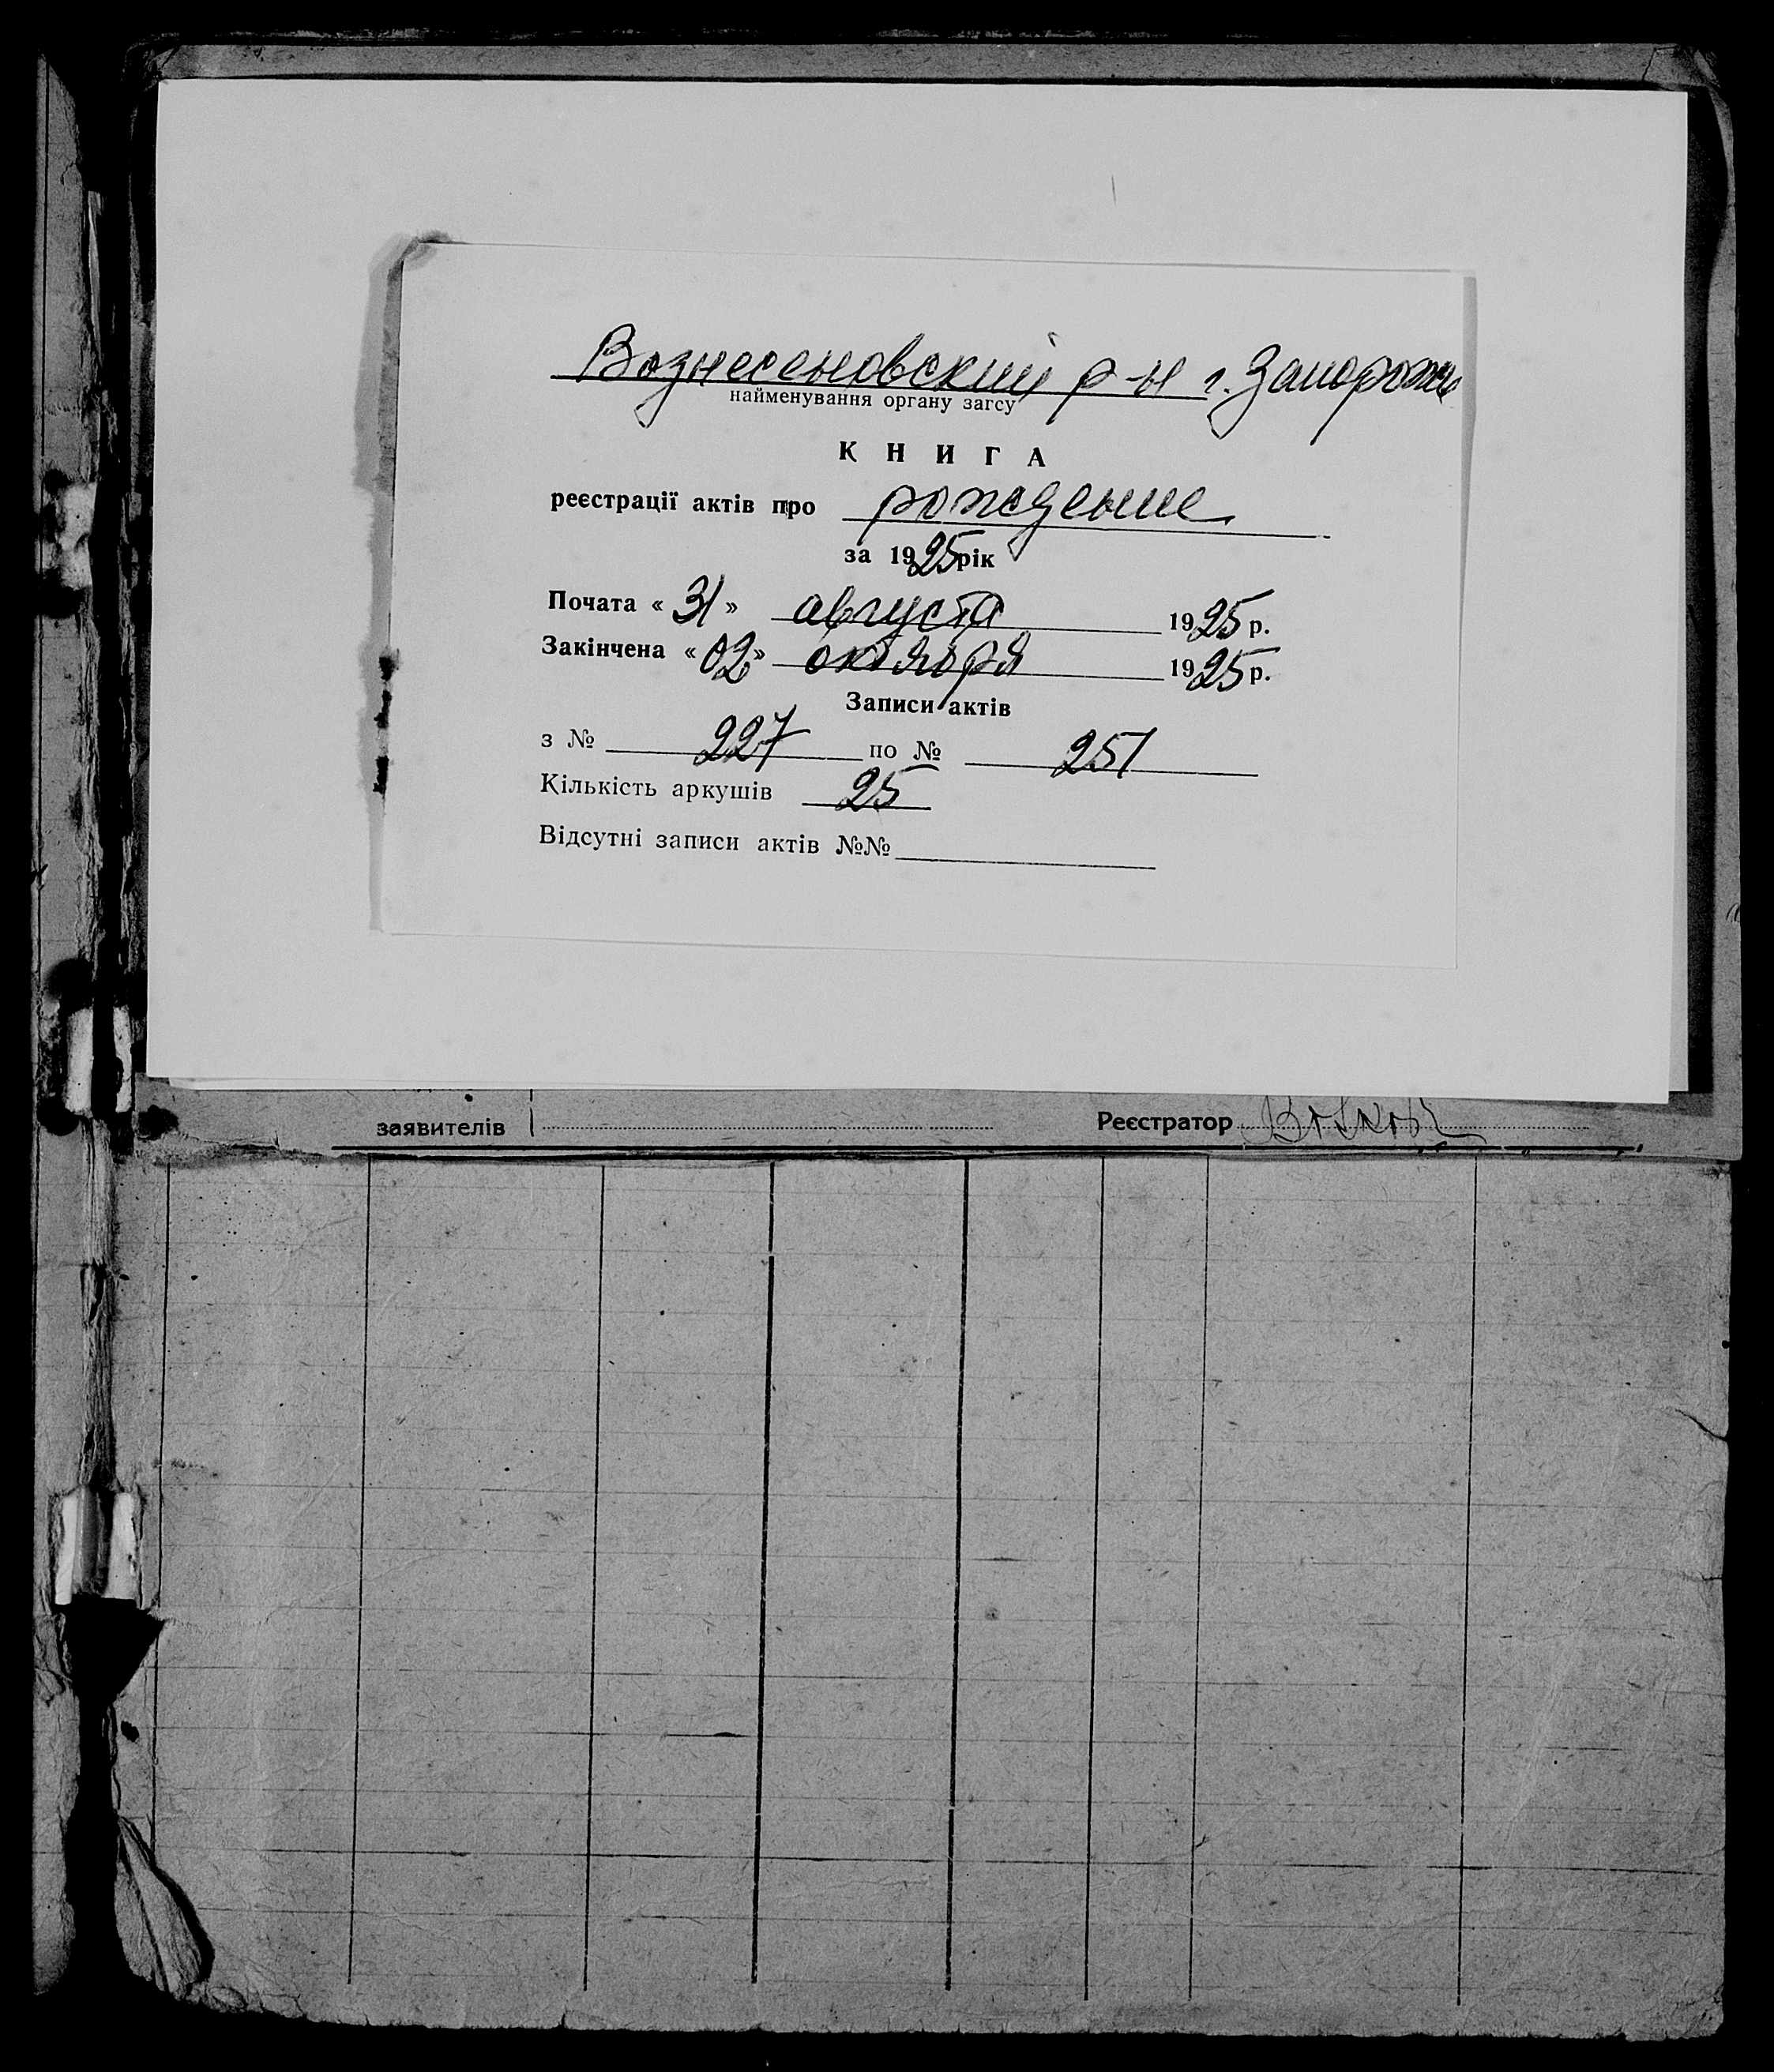 Вознесеновский р-н г. Запорожье
найменування органу загсу
КНИГА
реєстрації актів про рождение
за 1925 рік
Почата «31» августа 1925 р.
Закінчена «02» октября 1925 р.
Записи актів
з № 227 по № 251
Кількість аркушів 25
Відсутні записи актів №№
заявителів Реєстратор